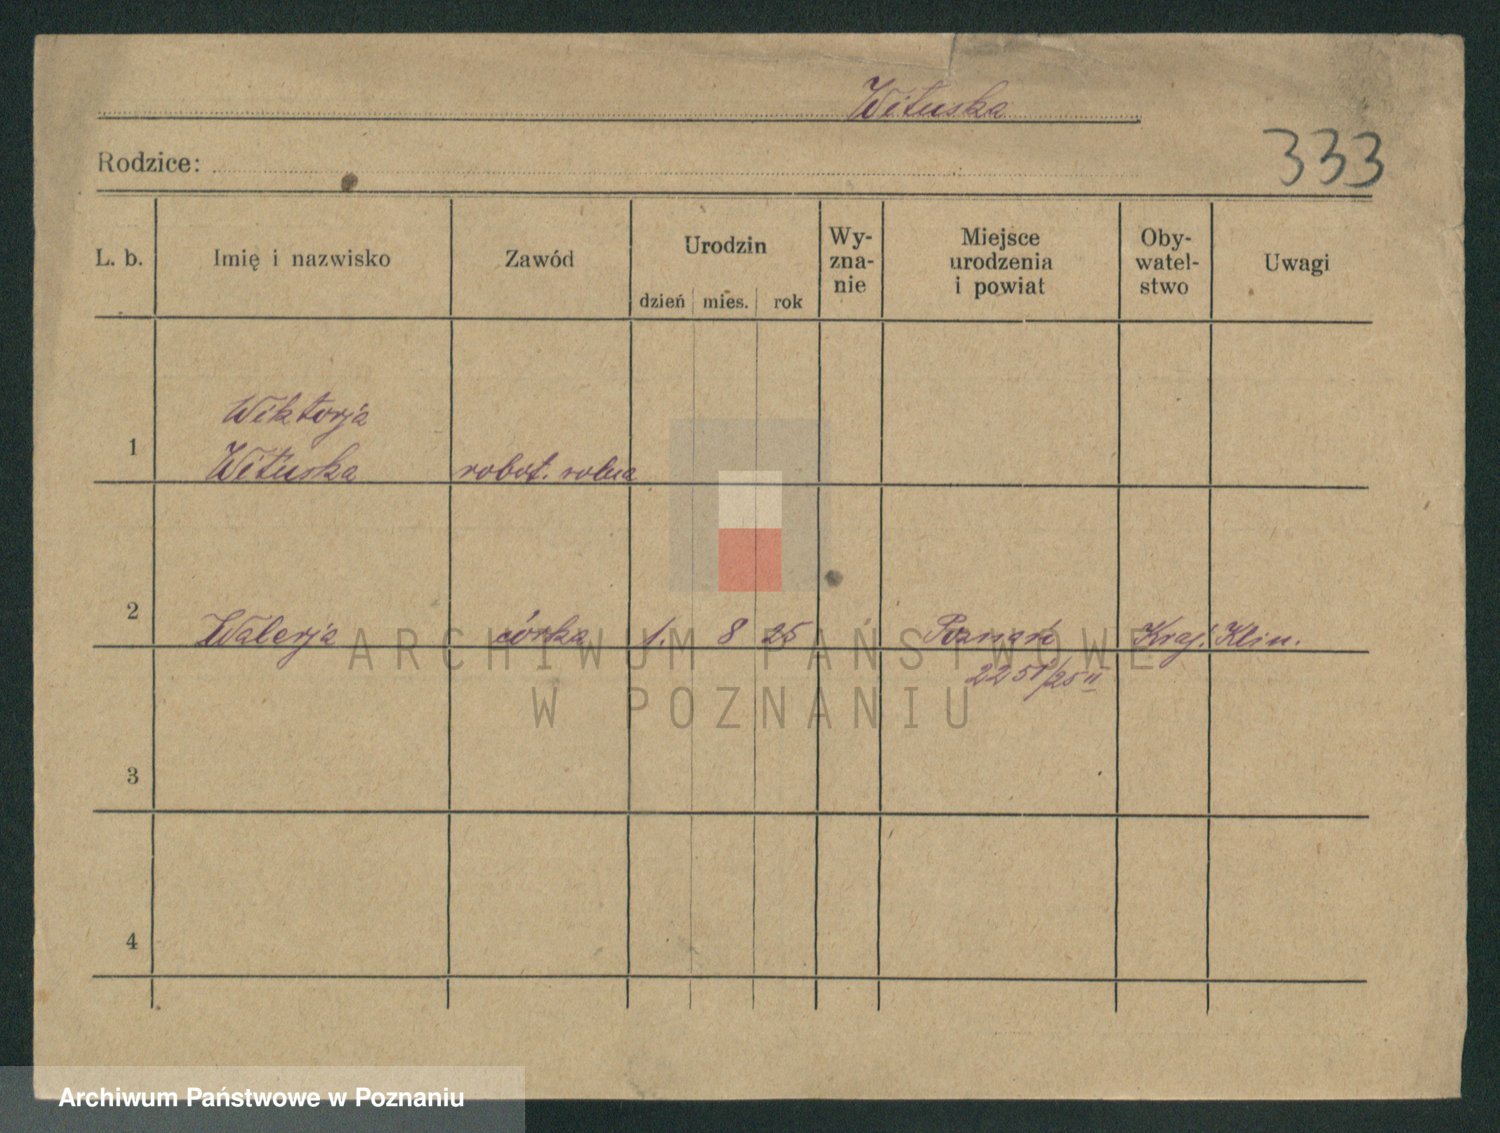 Wituska
Rodzice:
333
L. b. Imię i nazwisko Zawód Urodzin dzień mies. rok Wy-zna-nie Miejsce urodzenia i powiat Oby-watel-stwo Uwagi
Wiktorja
1 Wituska robot. rolna
2 Walerja córka 1. 8 25 Poznań Kraj. Klin.
2251/25 II
3
4
ARCHIWUM PAŃSTWOWE
W POZNANIU
Archiwum Państwowe w Poznaniu